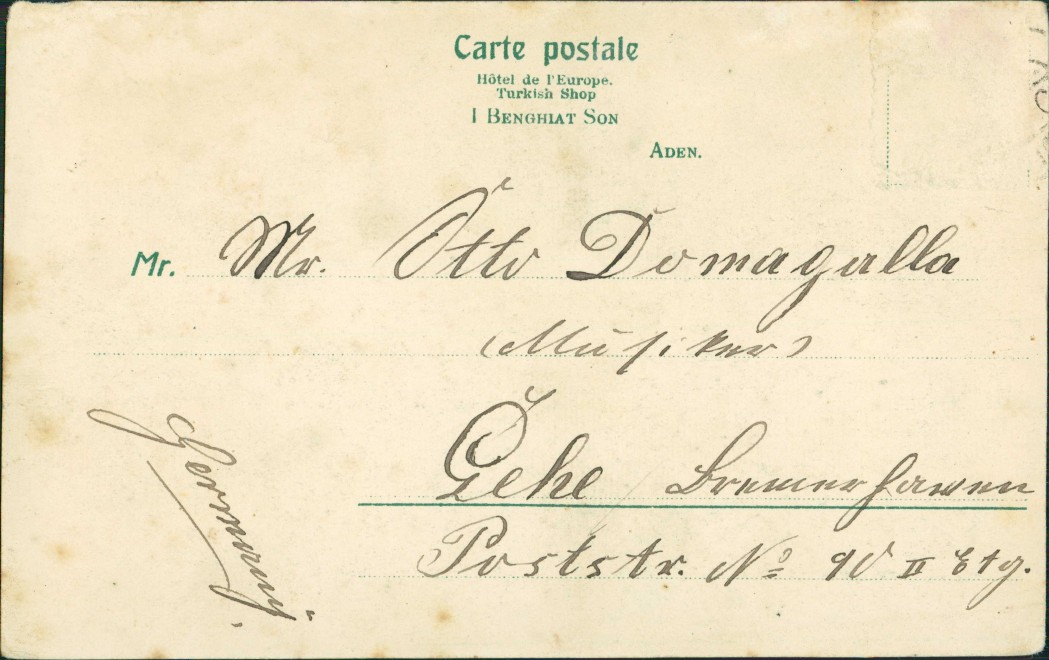 Carte postale
Hôtel de l'Europe.
Turkish Shop
I BENGHIAT SON
ADEN.
Mr. Mr. Otto Domagalla
(Musiker)
Gehe Bremerhaven
Poststr. No 90 II Etg.
Germany